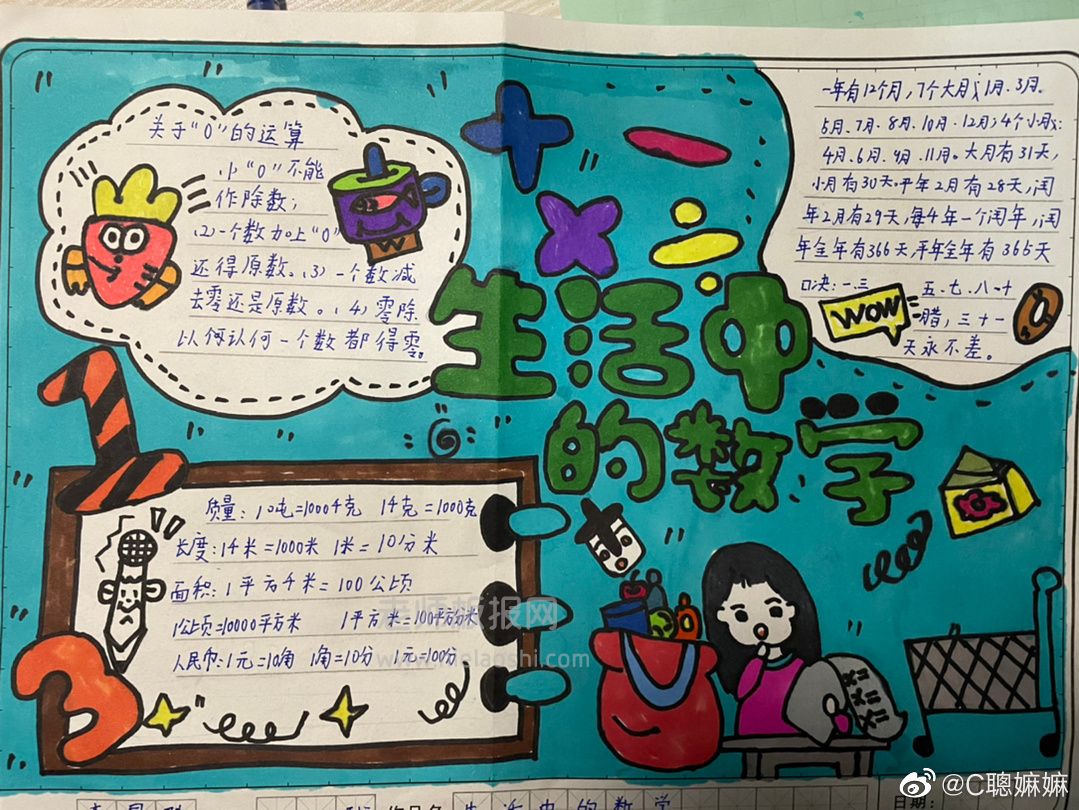 关于“0”的运算
(1)“0”不能
作除数；
(2)一个数加上“0”
还得原数。(3)一个数减
去零还是原数。(4)零除
以何认何一个数都得零。
一年有12个月，7个大月：1月、3月、
5月、7月、8月、10月、12月；4个小月：
4月、6月、9月、11月。大月有31天，
小月有30天。平年2月有28天，闰
年2月有29天，每4年一个闰年，闰
年全年有366天，平年全年有365天
口决：一、三 五、七、八、十
腊，三十一
天永不差。
WOW
生活中
的数学
1
质量：1吨=1000千克 1千克=1000克
长度：1千米=1000米 1米=10分米
面积：1平方千米=100公顷
1公顷=10000平方米 1平方米=100平方分米
人民币：1元=10角 1角=10分 1元=100分
3
老师板报网
@C聪嫲嫲
生活中的数学
日期：